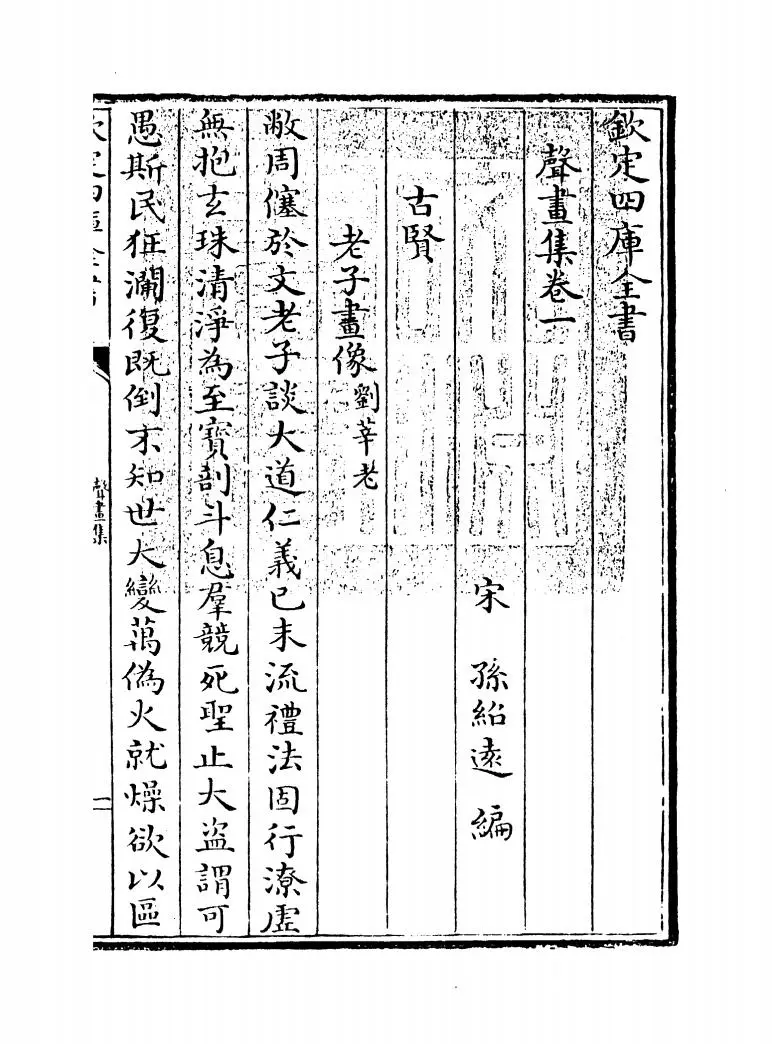 欽定四庫全書
聲畫集卷一
宋 孫紹遠 編
古賢
老子畫像 劉莘老
敝周僿於文老子談大道仁義已末流禮法固行潦虛
無抱玄珠清淨為至寳剖斗息羣競死聖止大盜謂可
愚斯民狂瀾復既倒不知世大變萬偽火就燥欲以區
欽定四庫全書
聲畫集
一